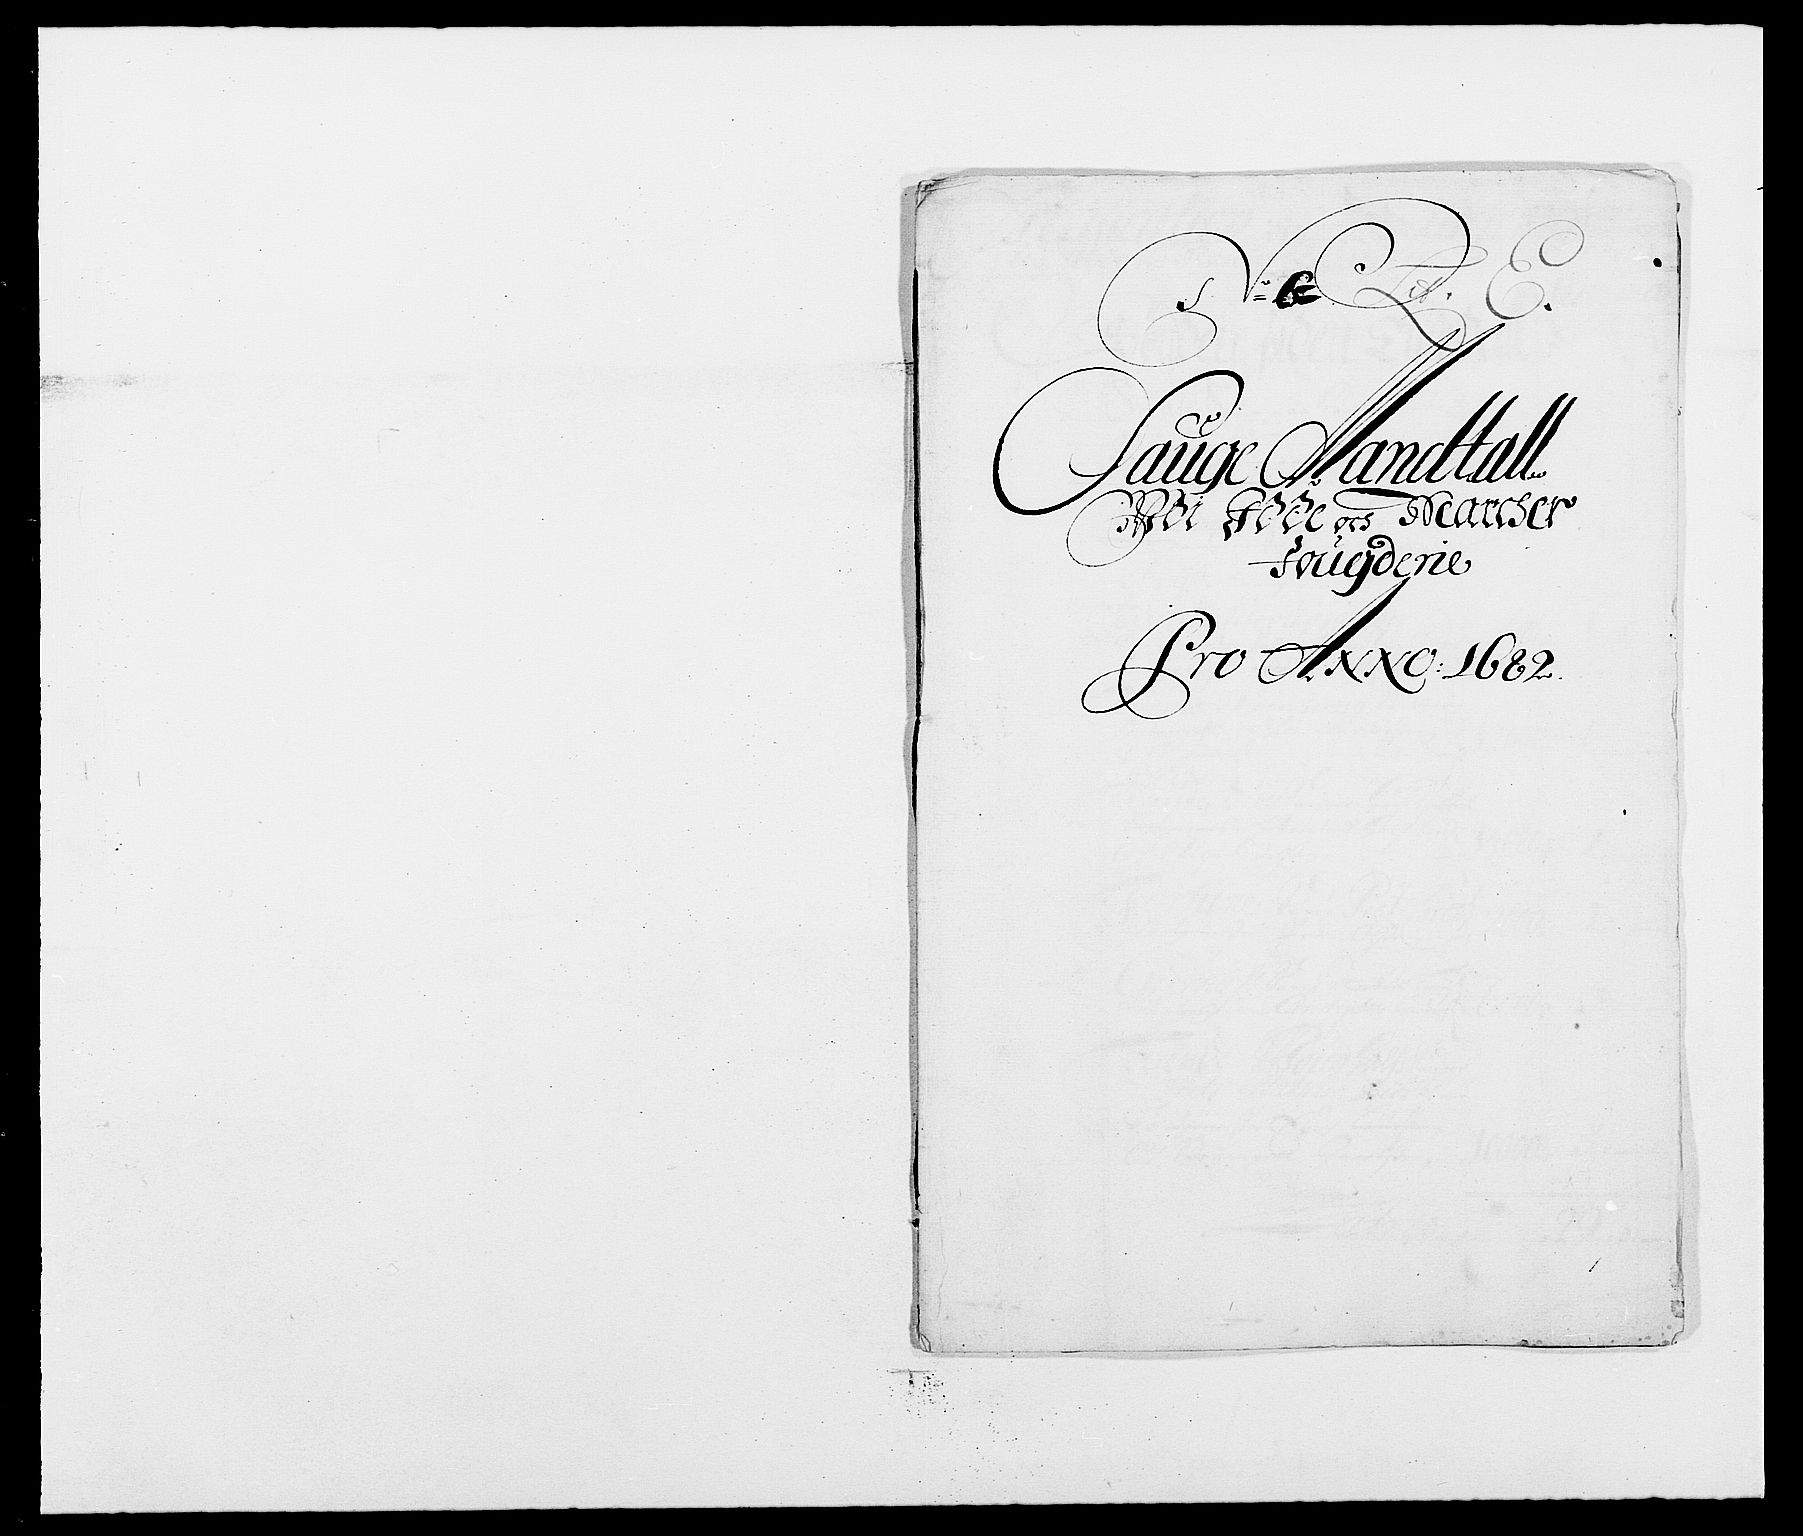 No 6 Lit. E.
Sauge Mandtall
Idde och Marcher
fougderie
Pro Anno: 1682.